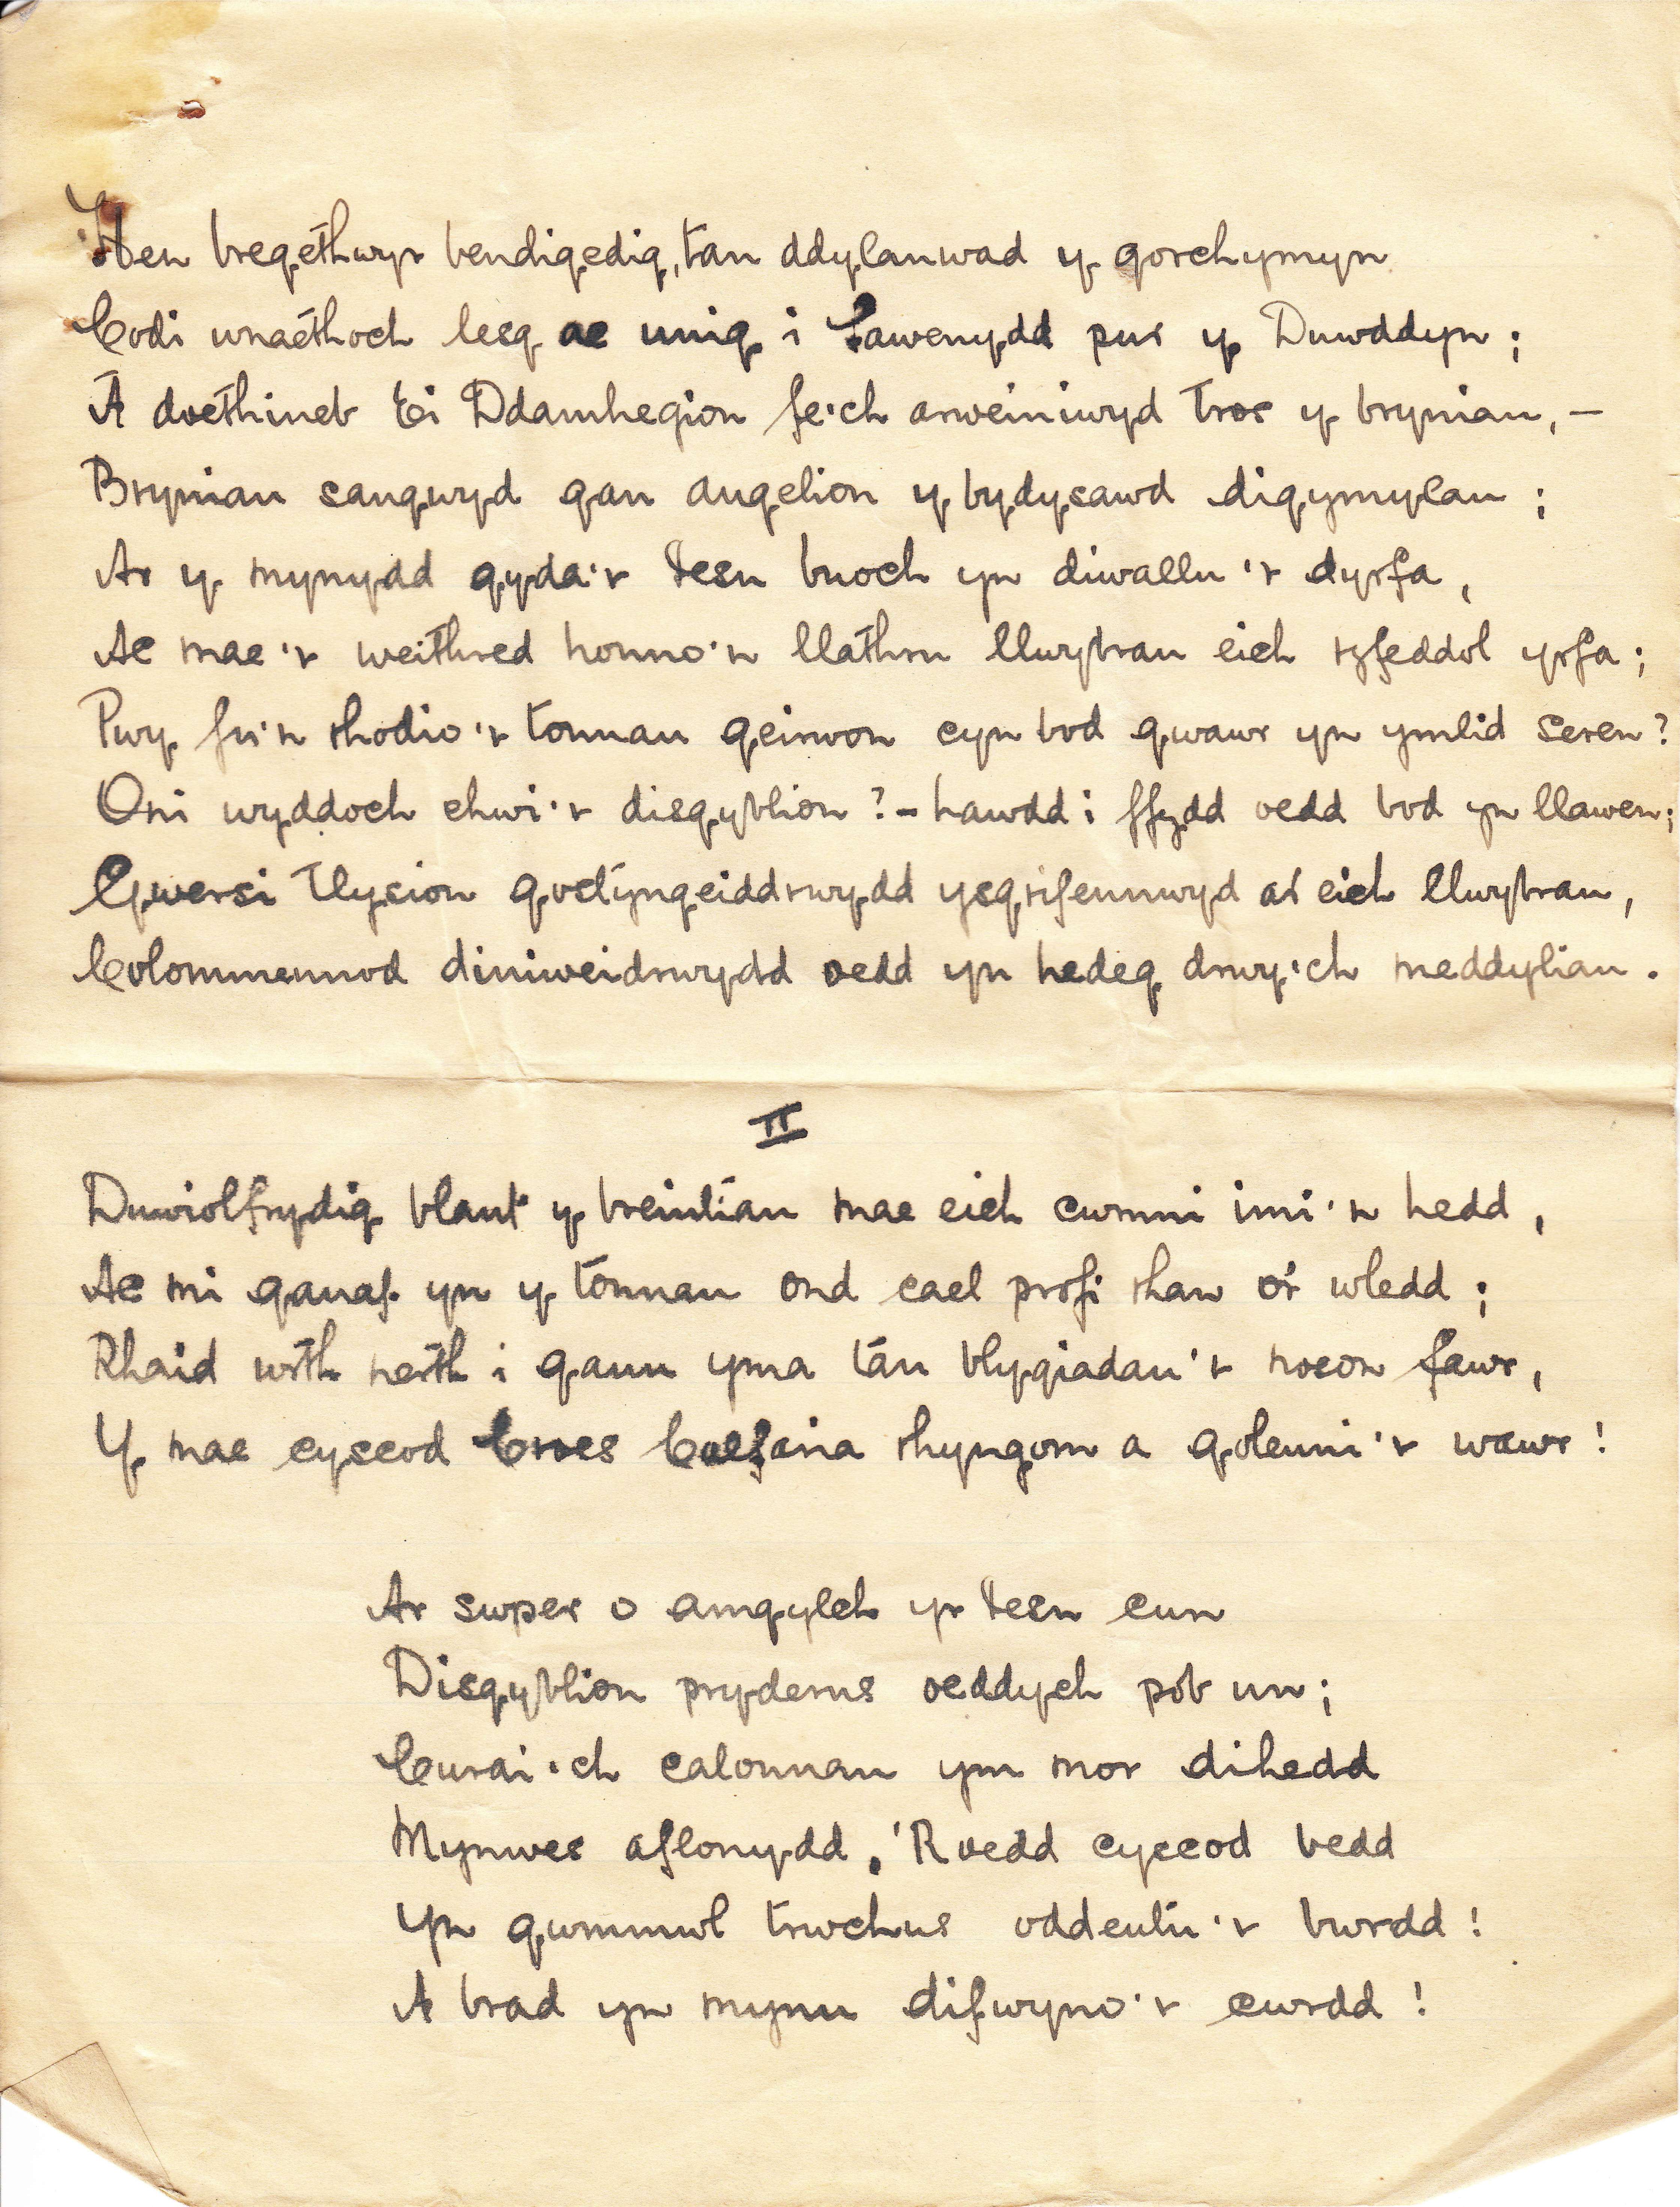 Hen bregethwyr bendigedig, tan ddylanwad y gorchymyn
Codi wnaethoch lesg ac unig i lawenydd pur y Duwddyn;
A doethineb Ei Ddamhegion fe'ch arweiniwyd tros y bryniau, –
Bryniau sangwyd gan angelion y bydysawd digymylau;
Ar y mynydd gyda'r Iesu buoch yn diwallu'r dyrfa,
Ac mae'r weithred honno'n llathru llwybrau eich rhyfeddol yrfa;
Pwy fu'n rhodio'r tonnau geirwon cyn bod gwawr yn ymlid seren?
Oni wyddoch chwi'r disgyblion? – hawdd i ffydd oedd bod yn llawen;
Gwersi tlysion gostyngeiddrwydd ysgrifennwyd ar eich llwybrau,
Colommennod diniweidrwydd oedd yn hedeg drwy'ch meddyliau.
II
Duwiolfrydig blant y breintiau mae eich cwmni imi'n hedd,
Ac mi ganaf yn y tonnau ond cael profi rhan o'r wledd;
Rhaid wrth nerth i ganu yma tan blygiadau'r noson fawr,
Y mae cyscod Croes Calfaria rhyngom a goleuni'r wawr!
Ar swper o amgylch yr Iesu cun
Disgyblion pryderus oeddych pob un;
Curai'ch calonnau ym mor dihedd
Mynwes aflonydd, 'Roedd cyscod bedd
Yn gwmmwl trwchus oddeutu'r bwrdd!
A brad yn mynu difwyno'r cwrdd!